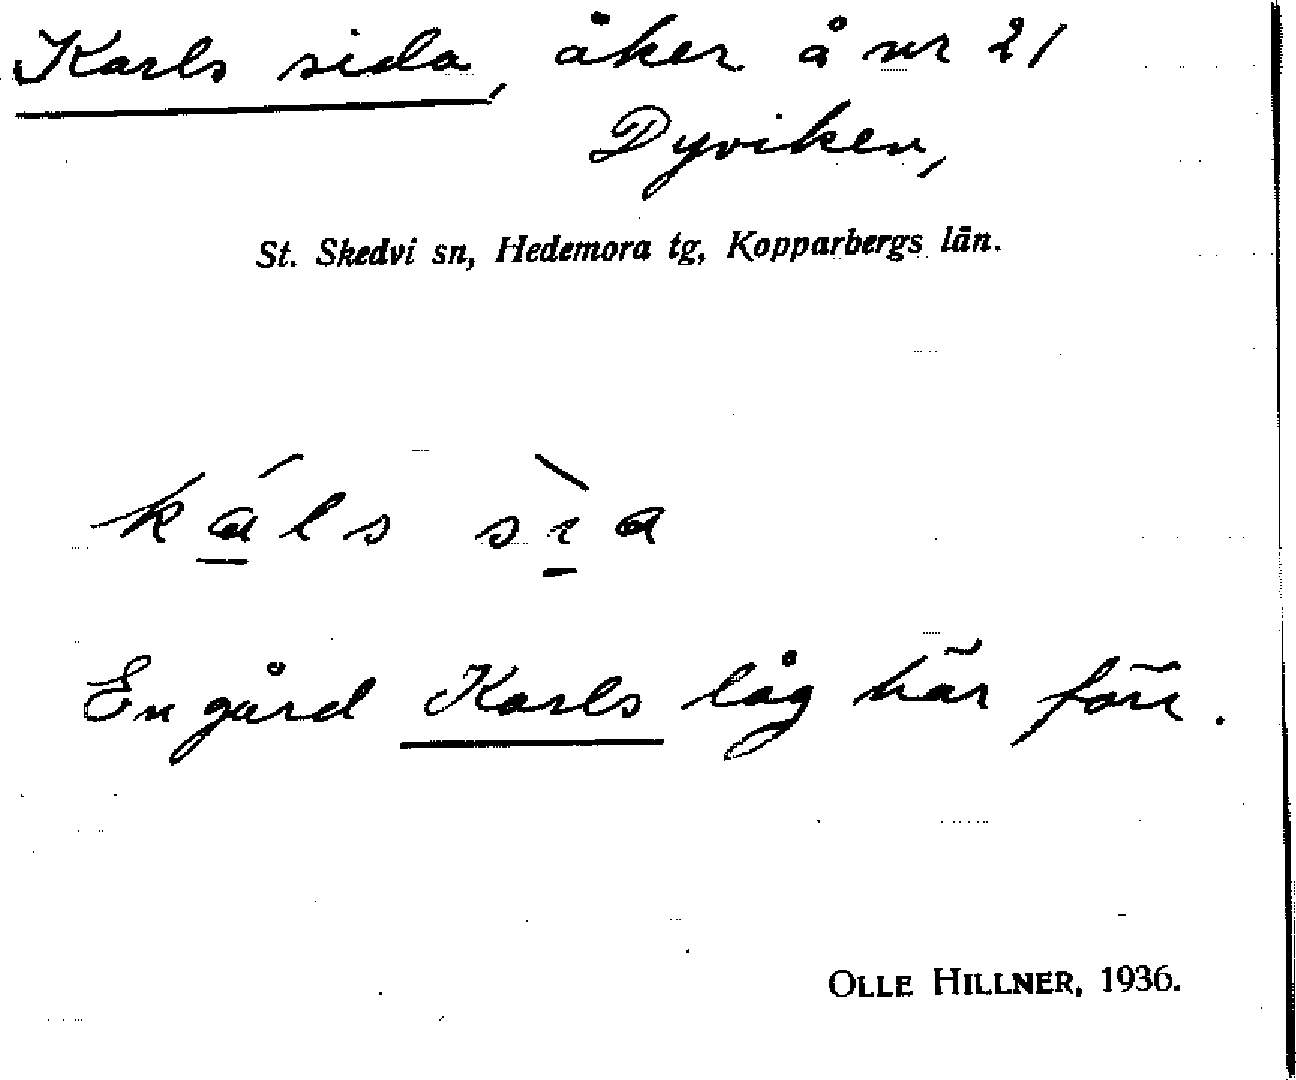 Karls sida, åker å nr 21
Dyviken,
St. Skedvi sn, Hedemora tg, Kopparbergs län.
ká̱ls sı̱̀a
En gård Karls låg här förr.
OLLE HILLNER, 1936.